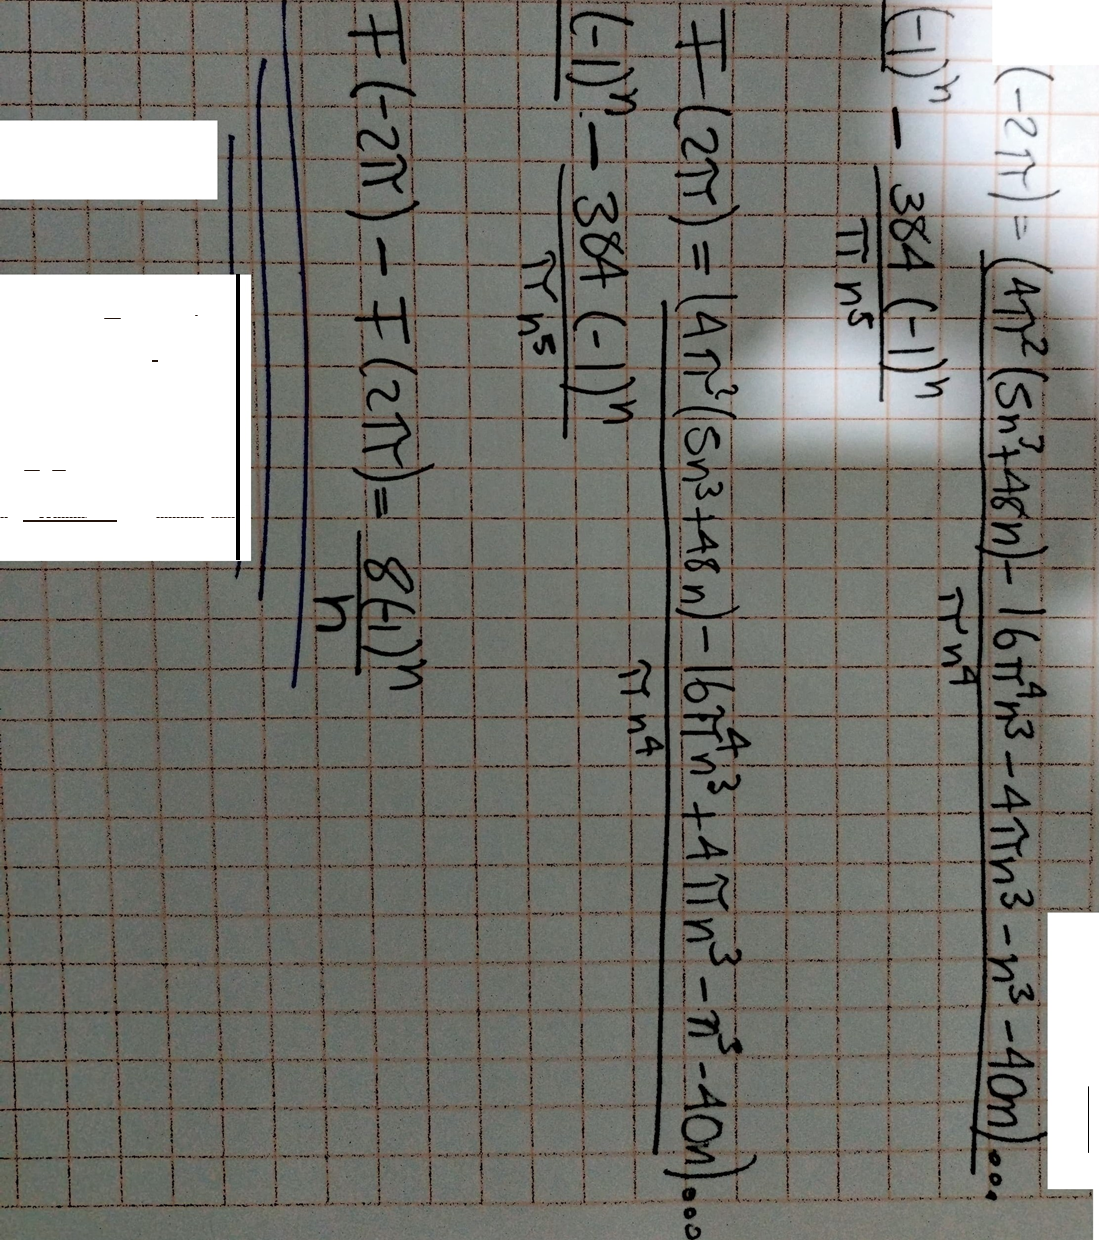 (-2π) = (4π²(5n³+48n) - 16π⁴n³ - 4πn³ - n³ - 40n)...
πn⁴
(-1)ⁿ - 384 (-1)ⁿ
πn⁵
F(2π) = (4π²(5n³+48n) - 16π⁴n³ + 4πn³ - n³ - 40n)...
πn⁴
(-1)ⁿ - 384 (-1)ⁿ
πn⁵
F(-2π) - F(2π) = 8(-1)ⁿ
n